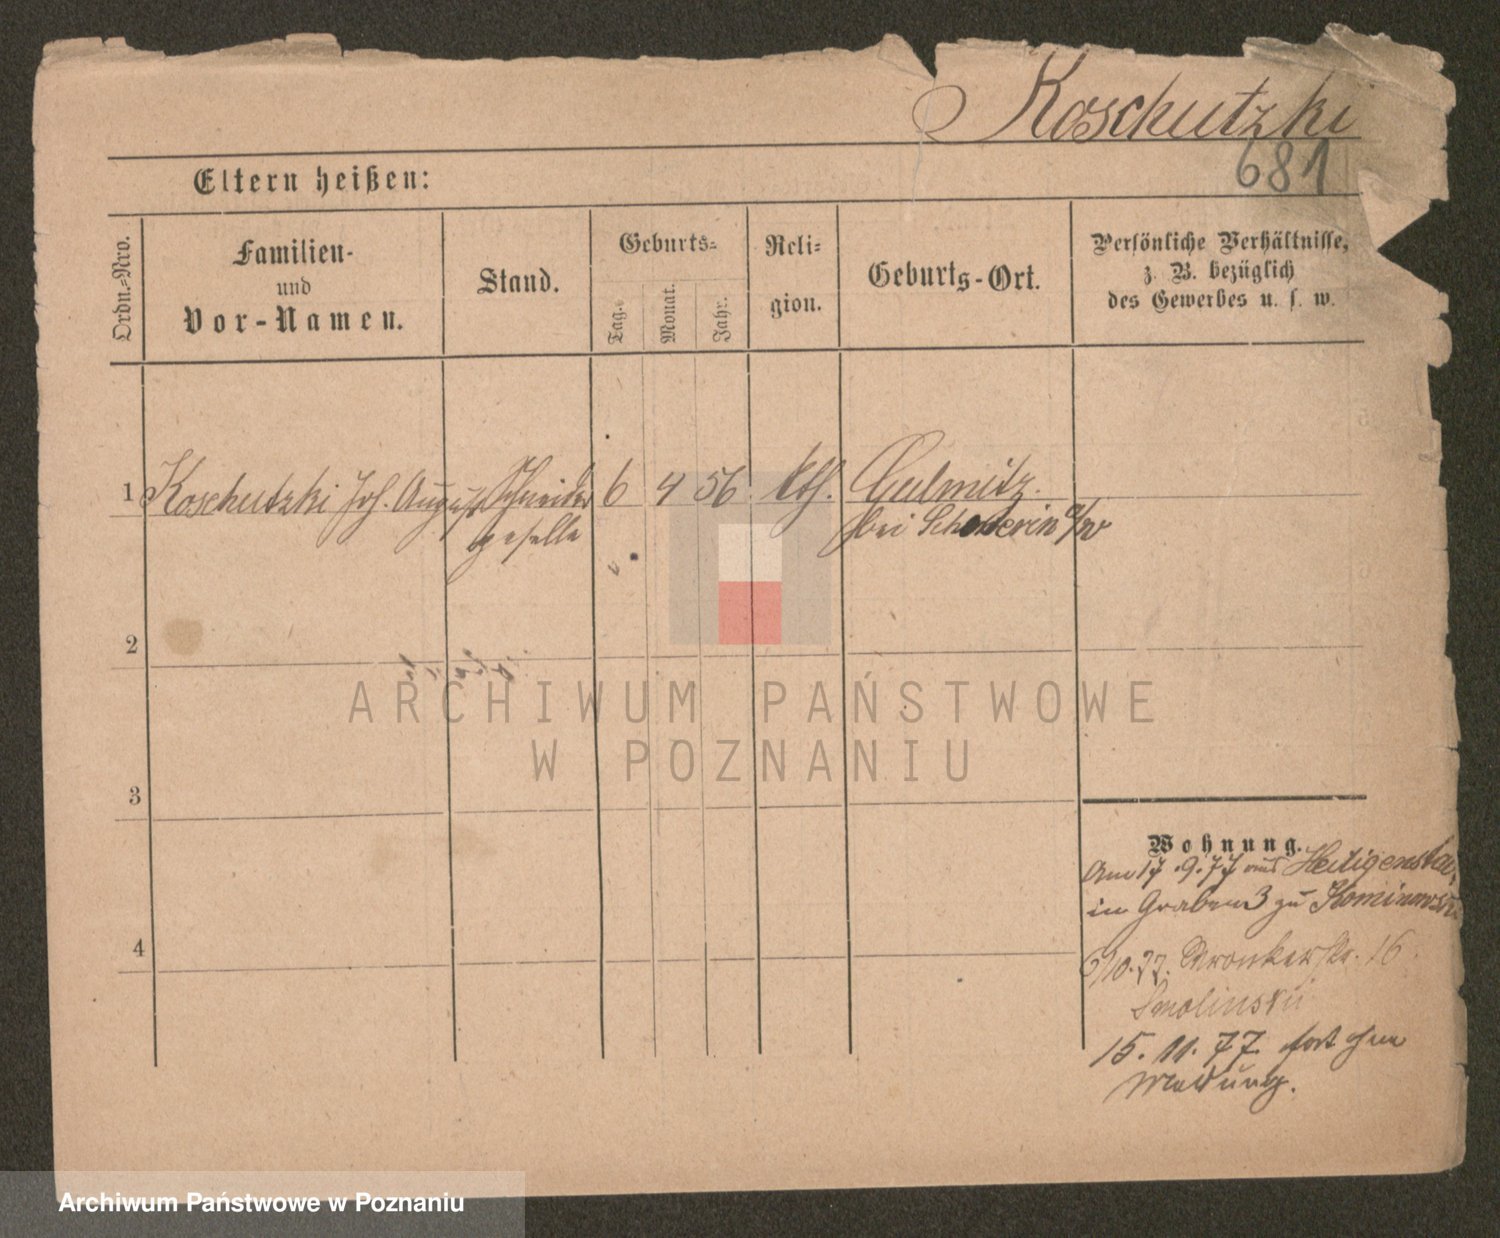 Koschutzki
681
Eltern heißen:
Ordn.-Nro.
Familien-
und
Vor-Namen.
Stand.
Geburts-
Tag.
Monat.
Jahr.
Reli-
gion.
Geburts-Ort.
Persönliche Verhältnisse,
z. B. bezüglich
des Gewerbes u. s. w.
1 Koschutzki Joh. August Schneider 6 4 56 kth.
geselle bei Schwerin a/w
2
ARCHIWUM PAŃSTWOWE
W POZNANIU
3
4
Wohnung.
Am 17.9.77 aus
in Graben 3 zu
6/10.77. Wronkerstr. 16.
Smolinski
15.11.77. fort ohne
Meldung.
Archiwum Państwowe w Poznaniu